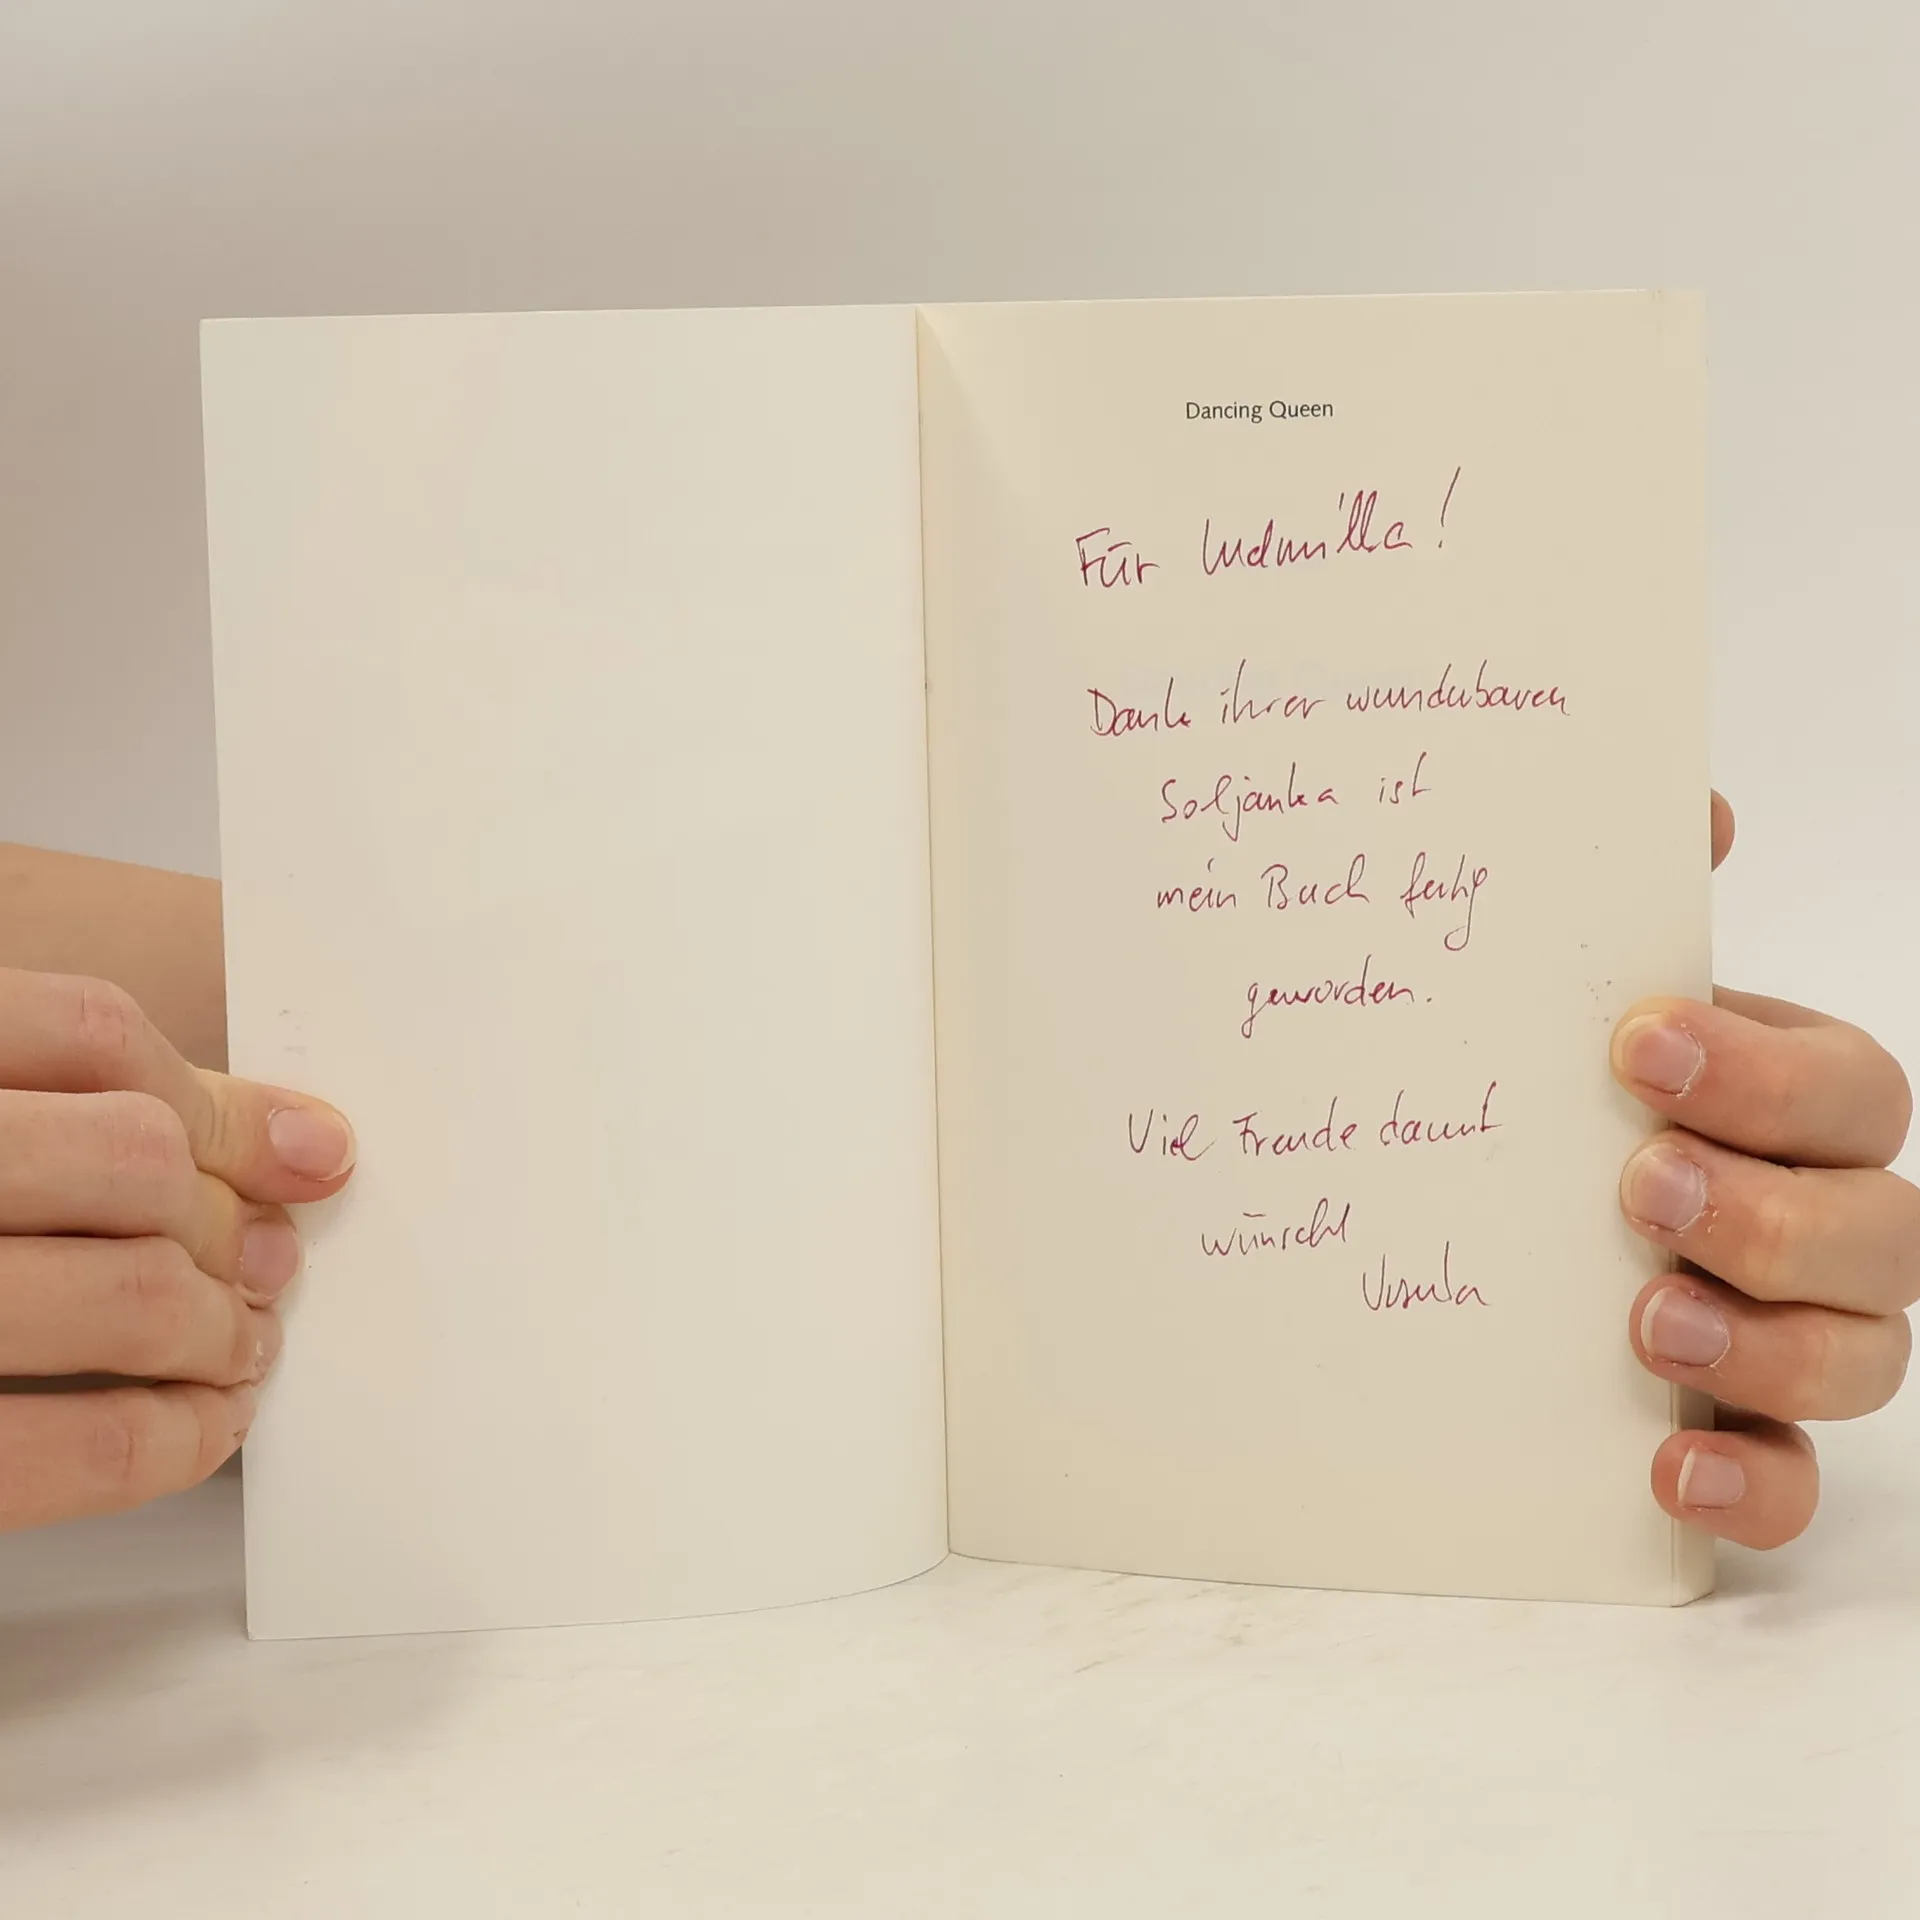 Dancing Queen
Für Ludmilla!
Dank ihrer wunderbaren
Soljanka ist
mein Buch fertig
geworden.
Viel Freude damit
wünscht
Ursula